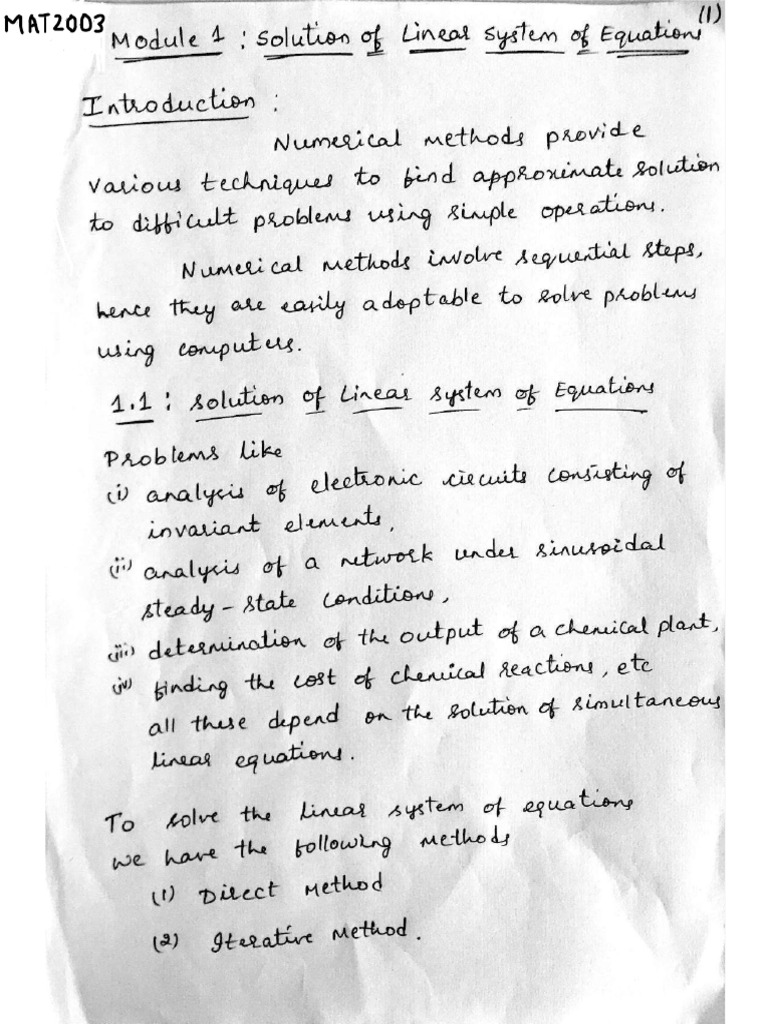 (1)
MAT2003
Module 1 : Solution of Linear System of Equations
Introduction :
Numerical methods provide
various techniques to find approximate solution
to difficult problems using simple operations.
Numerical methods involve sequential steps,
hence they are easily adoptable to solve problems
using computers.
1.1 : Solution of Linear System of Equations
Problems like
(i) analysis of electronic circuits consisting of
invariant elements,
(ii) analysis of a network under sinusoidal
steady-state conditions,
(iii) determination of the output of a chemical plant,
(iv) finding the cost of chemical reactions, etc
all these depend on the solution of simultaneous
linear equations.
To solve the linear system of equations
we have the following methods
(1) Direct Method
(2) Iterative Method.